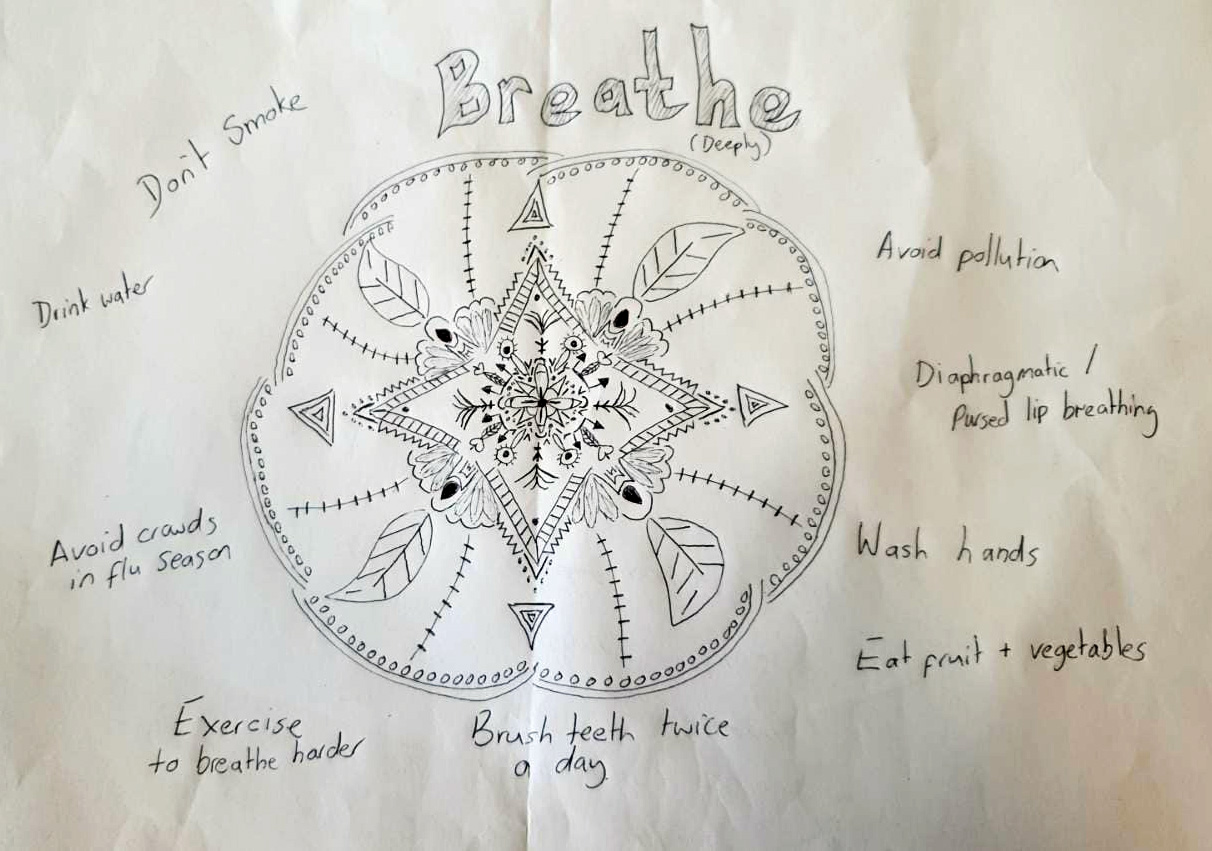 Breathe
(Deeply)
Don't Smoke
Drink water
Avoid pollution
Diaphragmatic /
Pursed lip breathing
Avoid crowds
in flu season
Wash hands
Eat fruit + vegetables
Exercise
to breathe harder
Brush teeth twice
a day